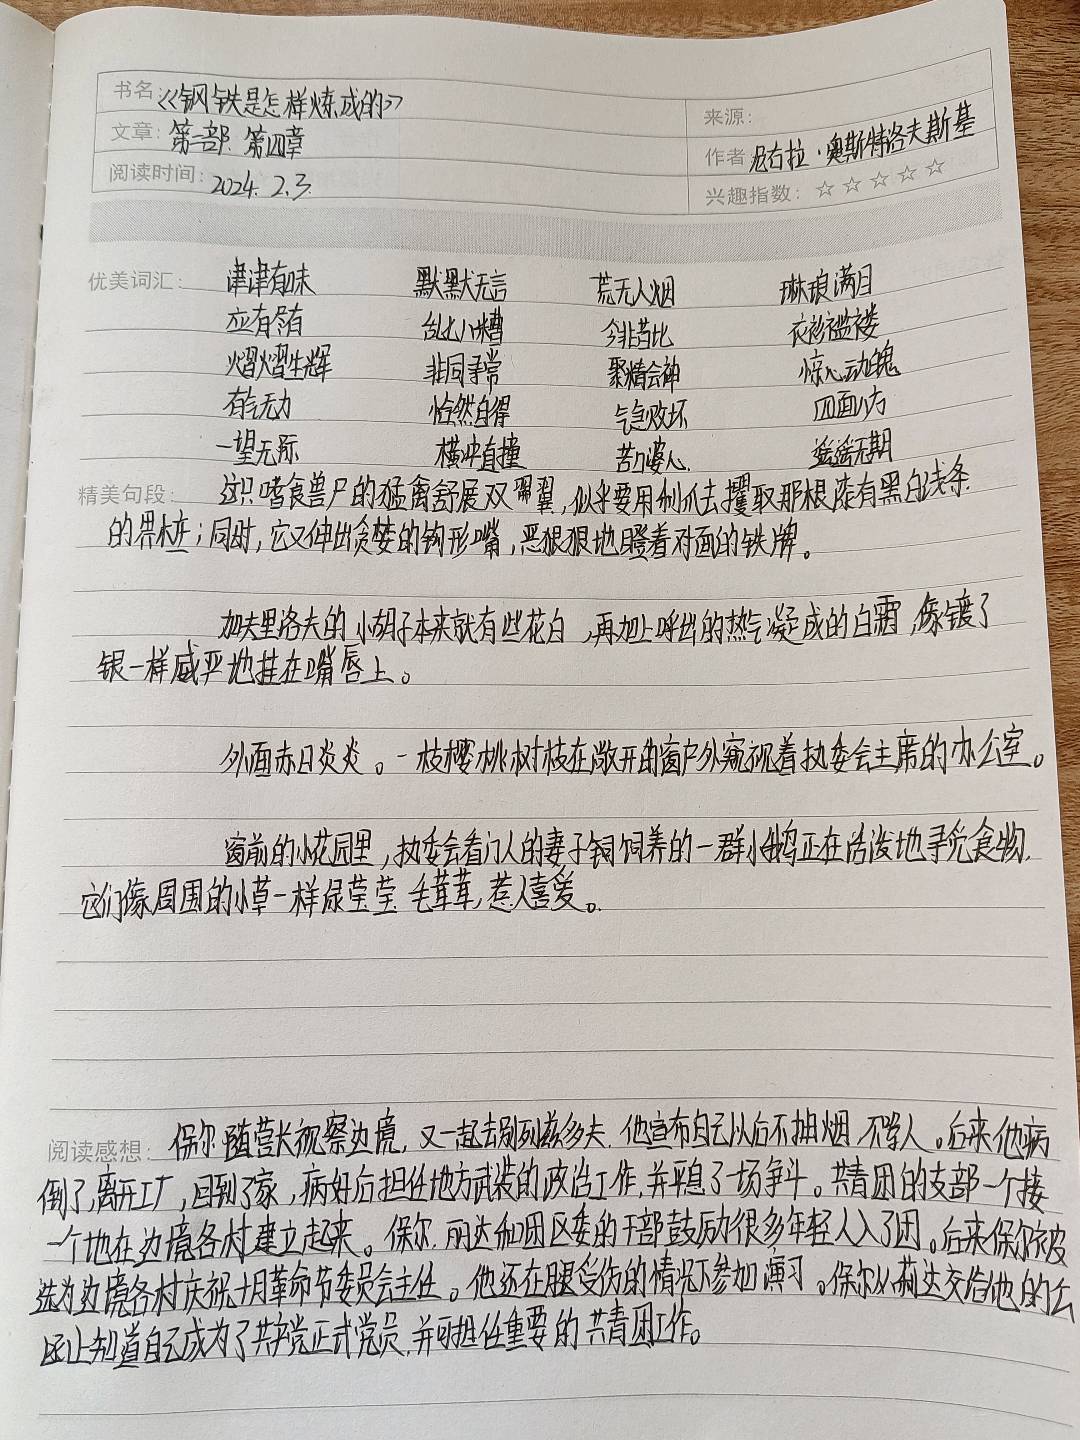 书名：《钢铁是怎样炼成的》
来源：
文章：第一部 第四章
作者 尼古拉·奥斯特洛夫斯基
阅读时间：2024.2.3.
兴趣指数：☆☆☆☆☆
优美词汇： 津津有味 默默无言 荒无人烟 琳琅满目
应有尽有 乱七八糟 今非昔比 衣衫褴褛
熠熠生辉 非同寻常 聚精会神 惊心动魄
有气无力 怡然自得 气急败坏 四面八方
一望无际 横冲直撞 苦口婆心 遥遥无期
精美句段： 这只嗜食兽尸的猛禽舒展双翼，似乎要用利爪去攫取那根漆有黑白线条
的界桩；同时，它又伸出贪婪的钩形嘴，恶狠狠地瞪着对面的铁牌。
加夫里洛夫的小胡子本来就有些花白，再加上呼出的热气凝成的白霜，像镀了
银一样威严地挂在嘴唇上。
外面赤日炎炎。一枝樱桃树枝在敞开的窗户外窥视着执委会主席的办公室。
窗前的小花园里，执委会看门人的妻子饲养的一群小鹅正在活泼地寻觅食物，
它们像周围的小草一样绿莹莹 毛茸茸，惹人喜爱。
阅读感想： 保尔随营长视察边境，又一起去别列兹多夫，他宣布自己以后不抽烟，不骂人。后来他病
倒了，离开工厂，回到了家，病好后担任地方武装的政治工作，并平息了一场争斗。共青团的支部一个接
一个地在边境各村建立起来。保尔，丽达和团区委的干部鼓励很多年轻人入了团。后来保尔被
选为边境各村庆祝十月革命节委员会主任。他还在腿受伤的情况下参加演习。保尔从丽达交给他的
让知道自己成为了共产党正式党员，并可担任重要的共青团工作。